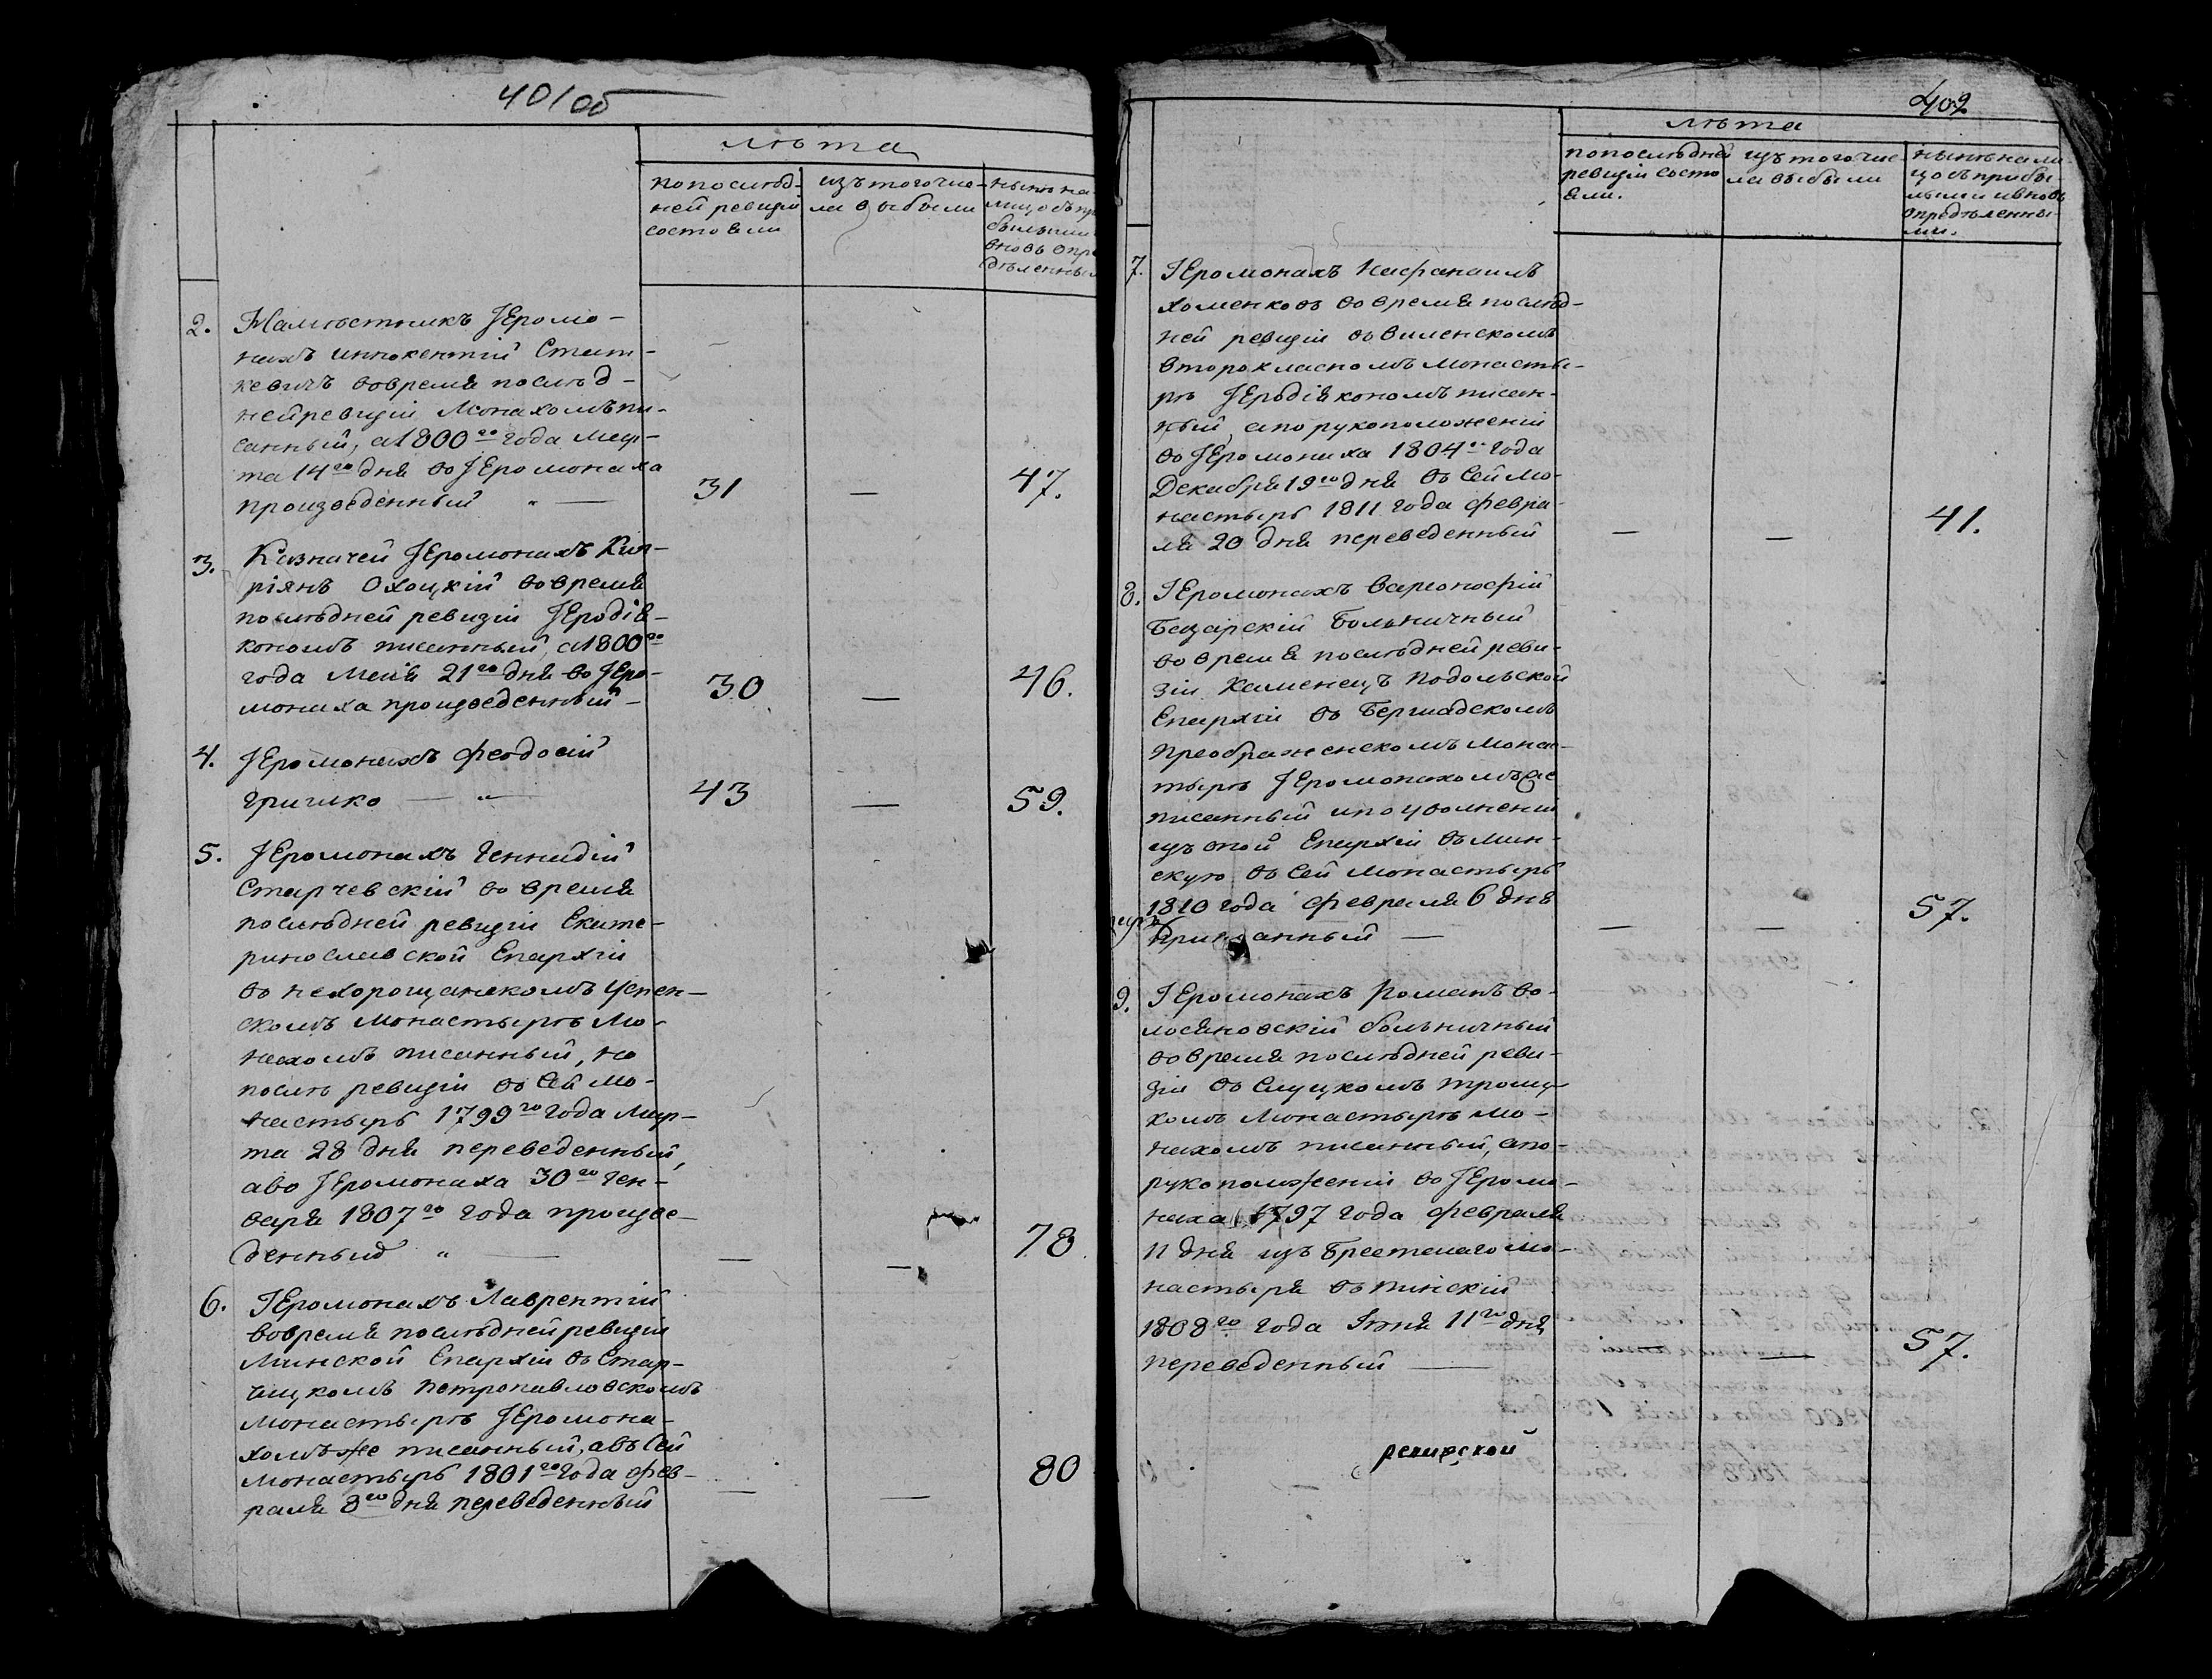 401об
лѣта
попослѣд-
ней ревизіи
состояли
изъ того чис-
ла выбыли
нынѣ на
лицо съ пр
былыми
вновь опре
дѣленным
2. Намѣстникъ Іеромо-
нахъ Иннокентій Стат-
кевичъ вовремя послѣд-
ней ревизіи Монахомъ пи-
санный, а 1800го года мар-
та 14го дня во Іеромонаха
произведенный " — 31 — 47.
3. Казначей Іеромонахъ Кип-
ріянъ Охоцкій вовремя
послѣдней ревизіи Іеродія-
кономъ писанный, а 1800го
года Маія 21го дня во Іеро-
монаха произведенный — 30 — 46.
4. Іеромонахъ Феодосій
Гришко — " — 43 — 59.
5. Іеромонахъ Геннадій
Старчевскій во время
послѣдней ревизіи Екате-
ринославской Епархіи
въ нехорощанскомъ Успен-
скомъ Монастырѣ Мо-
нахомъ писанный, но
послѣ ревизіи въ сей мо-
настырь 1799го года Мар-
та 28 дня переведенный,
а во Іеромонаха 30го Ген-
варя 1807го года произве-
денный " — — — 78
6. Іеромонахъ Лаврентій
вовремя послѣдней ревизіи
Минской Епархіи въ Стар-
чицкомъ Петропавловскомъ
монастырѣ Іеромона-
хомъ же писанный, а въ сей
монастырь 1801го года фев-
раля 8го дня переведенный — — 80
402
лѣта
попослѣдней
ревизіи состо
яли.
изъ того чис-
ла выбыли
нынѣ на ли
цо съ прибы-
лыми и вновь
опредѣленны-
ми.
7. Іеромонахъ Нафанаилъ
Хоменковъ во время послѣд-
ней ревизіи въ виленскомъ
второкласномъ монасты-
рѣ Іеродіякономъ писан-
ный, а по рукоположеніи
во Іеромонаха 1804го года
Декабря 19го дня въ сей мо-
настырь 1811 года февра-
ля 20 дня переведенный — — 41.
8. Іеромонахъ Варсонофій
Базарскій Больничный
во время послѣдней реви-
зіи Каменецъ Подольской
Епархіи въ Бершадскомъ
Преображенскомъ монас-
тырѣ Іеромонахомъ же
писанный и по уволнении
изъ оной Епархіи въ Мин-
скую въ сей Монастырь
1810 года февраля 6 дня
принанный — — — 57.
9. Іеромонахъ Романъ Во-
лосяновскій больничный
во время послѣдней реви-
зіи въ Слуцкомъ троиц-
комъ Монастырѣ мо-
нахомъ писанный, а по-
рукоположеніи во Іеромо-
наха 1797 года февраля
11 дня изъ Брестскаго мо-
настыря въ пинскій
1808го года Іюня 11го дня
переведенный — — — 57.